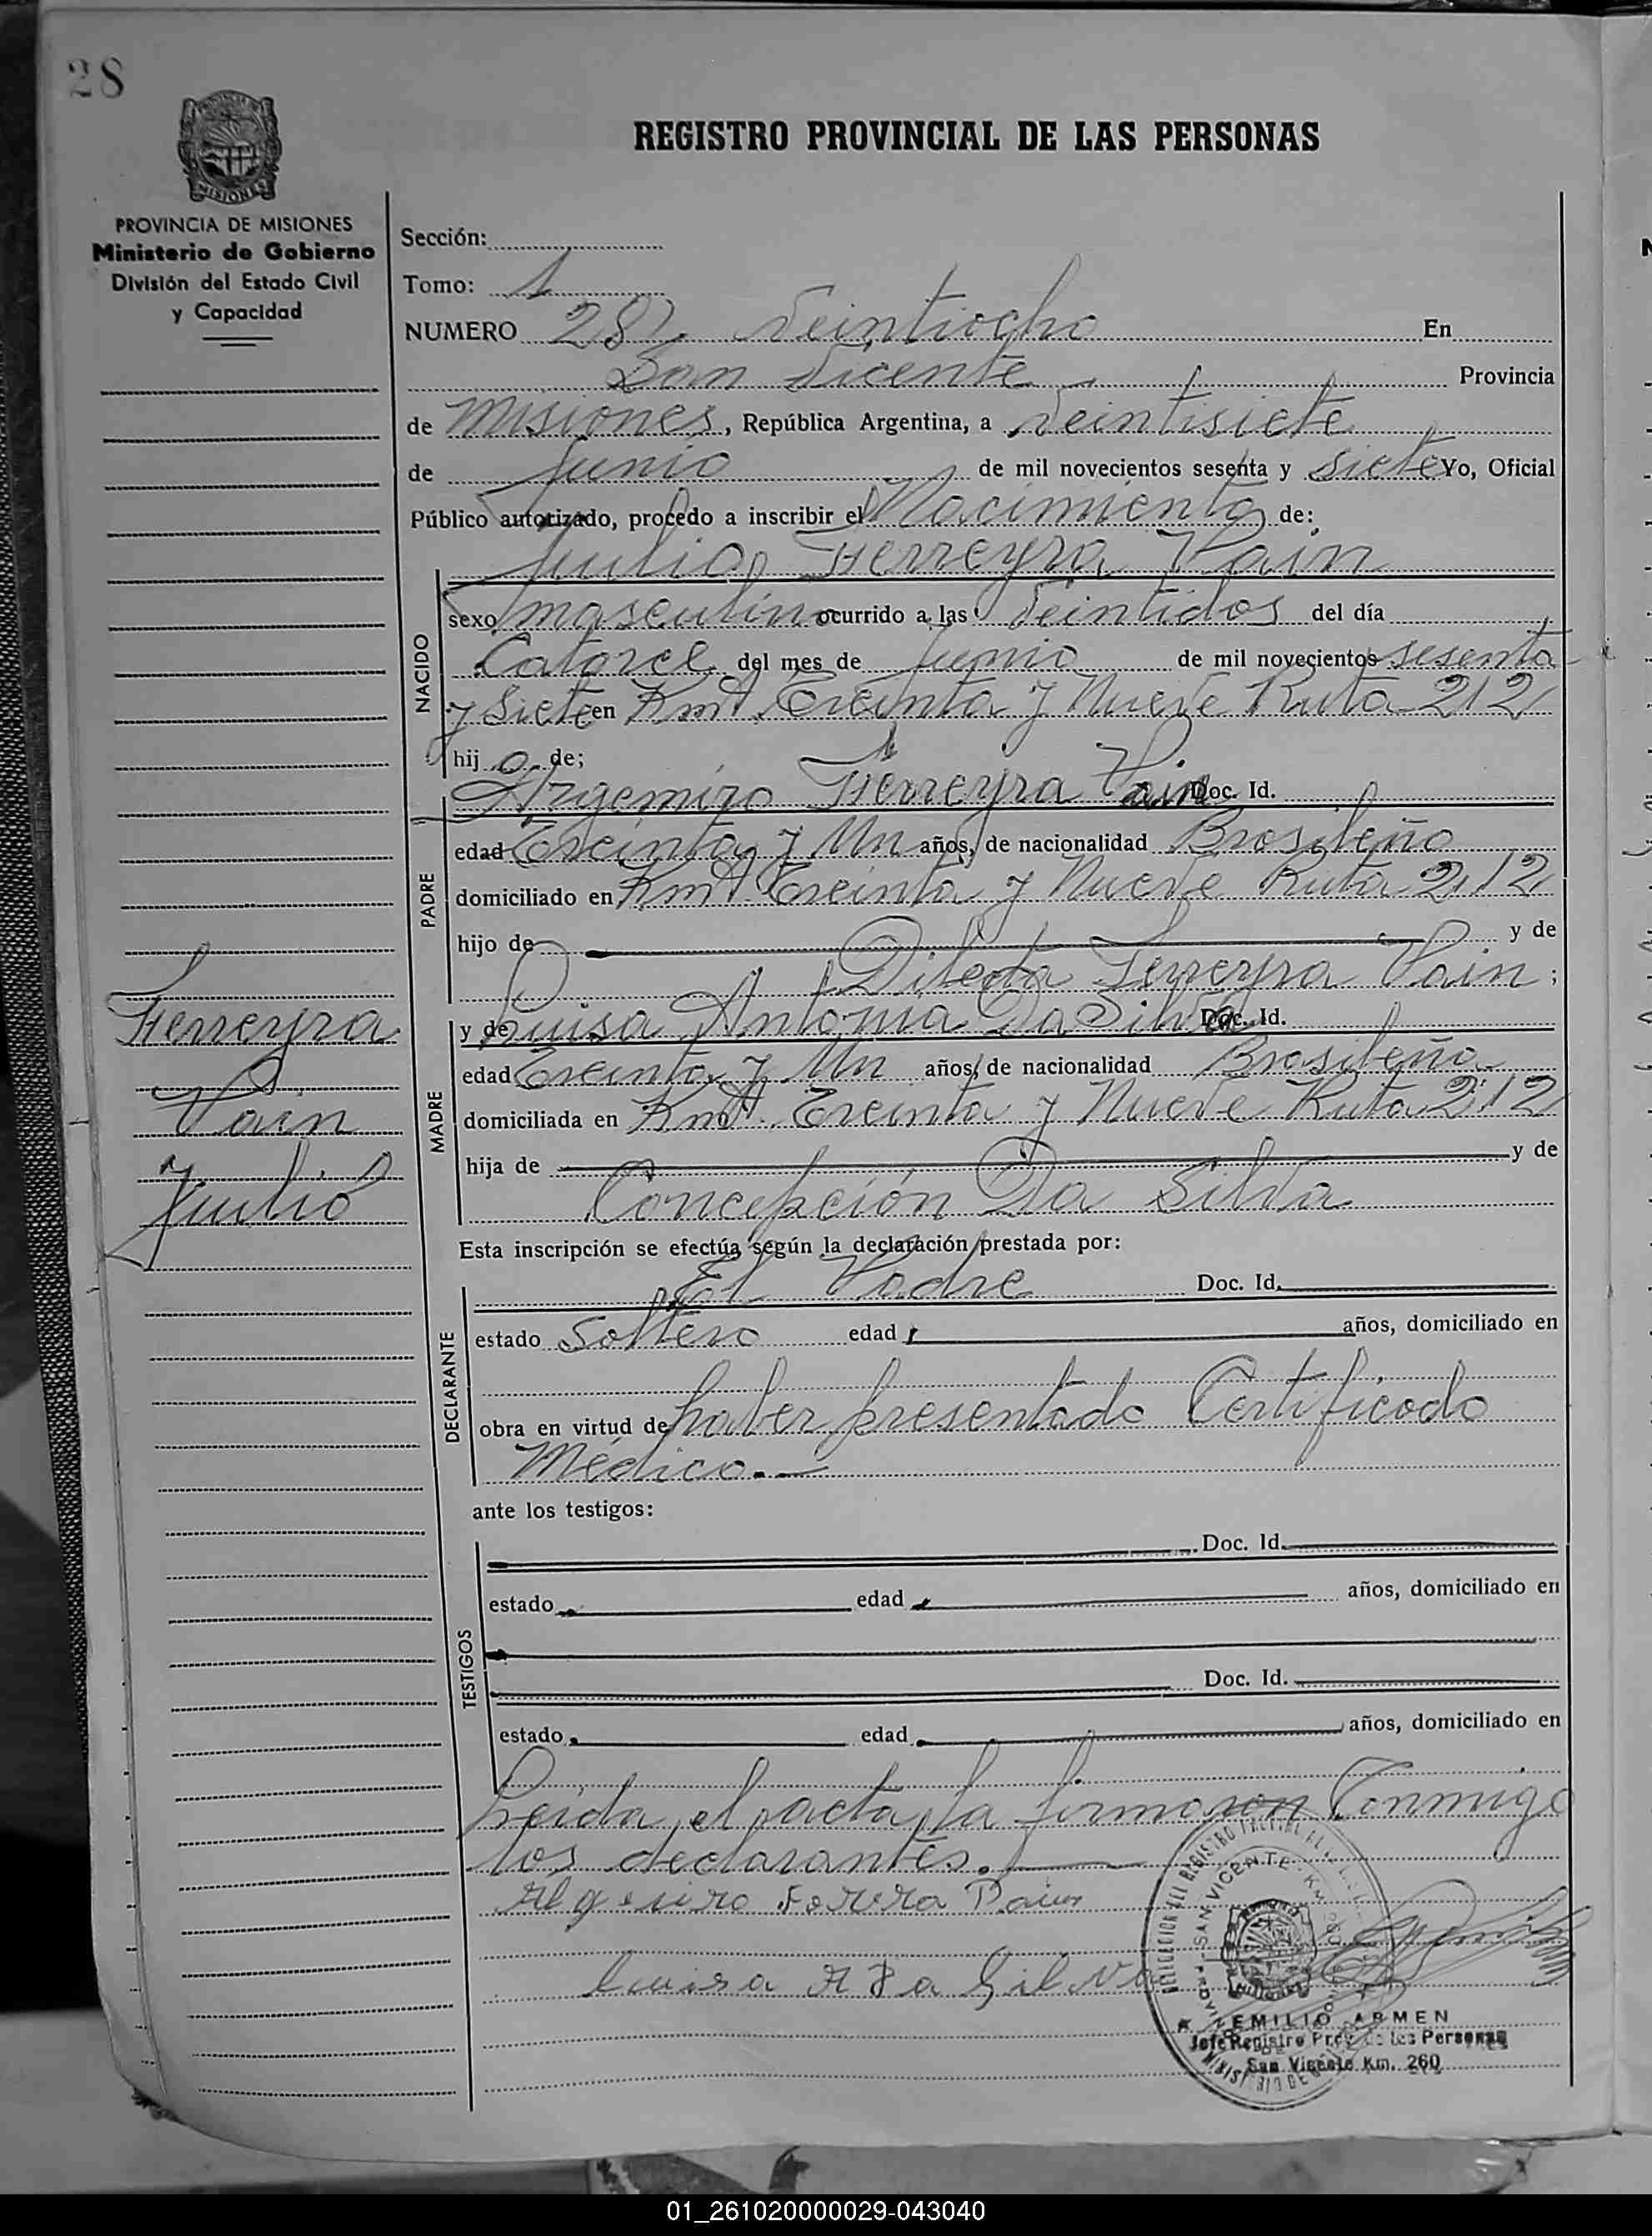 28
PROVINCIA DE MISIONES
Ministerio de Gobierno
División del Estado Civil
y Capacidad
REGISTRO PROVINCIAL DE LAS PERSONAS
Sección:
Tomo: 1
NUMERO 28 Veintiocho En
San Vicente Provincia
de Misiones, República Argentina, a Veintisiete
de Junio de mil novecientos sesenta y siete Yo, Oficial
Público autorizado, procedo a inscribir el Nacimiento de:
Julio Ferreyra Pain
NACIDO
sexo masculino ocurrido a las Veintidos del día
Catorce del mes de Junio de mil novecientos sesenta
y Siete en Kmt. Treinta y Nueve Ruta 212
hijo de;
PADRE
Argemiro Ferreyra Pain Doc. Id.
edad Treinta y Un años, de nacionalidad Brasileño
domiciliado en Kmt. Treinta y Nueve Ruta 212
hijo de y de
Ferreyra Pain ;
MADRE
y de Luisa Antonia Da Silva Doc. Id.
edad Treinta y Un años, de nacionalidad Brasileña
domiciliada en Kmt. Treinta y Nueve Ruta 212
hija de y de
Concepción Da Silva
Ferreyra
Pain
Julio
Esta inscripción se efectúa según la declaración prestada por:
DECLARANTE
El Padre Doc. Id.
estado Soltero edad años, domiciliado en
obra en virtud de haber presentado Certificado
Médico.
ante los testigos:
TESTIGOS
Doc. Id.
estado edad años, domiciliado en
Doc. Id.
estado edad años, domiciliado en
Leída el acta, la firmaron Conmigo
los declarantes.
Luisa A Da Silva
SAN VICENTE
EMILIO ARMEN
Jefe Registro Prov. de las Personas
San Vicente Km. 260
01_261020000029-043040